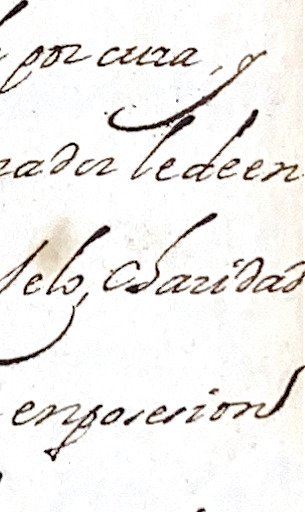 por cura, y
rador le de en
selo, Charidad
en posesion